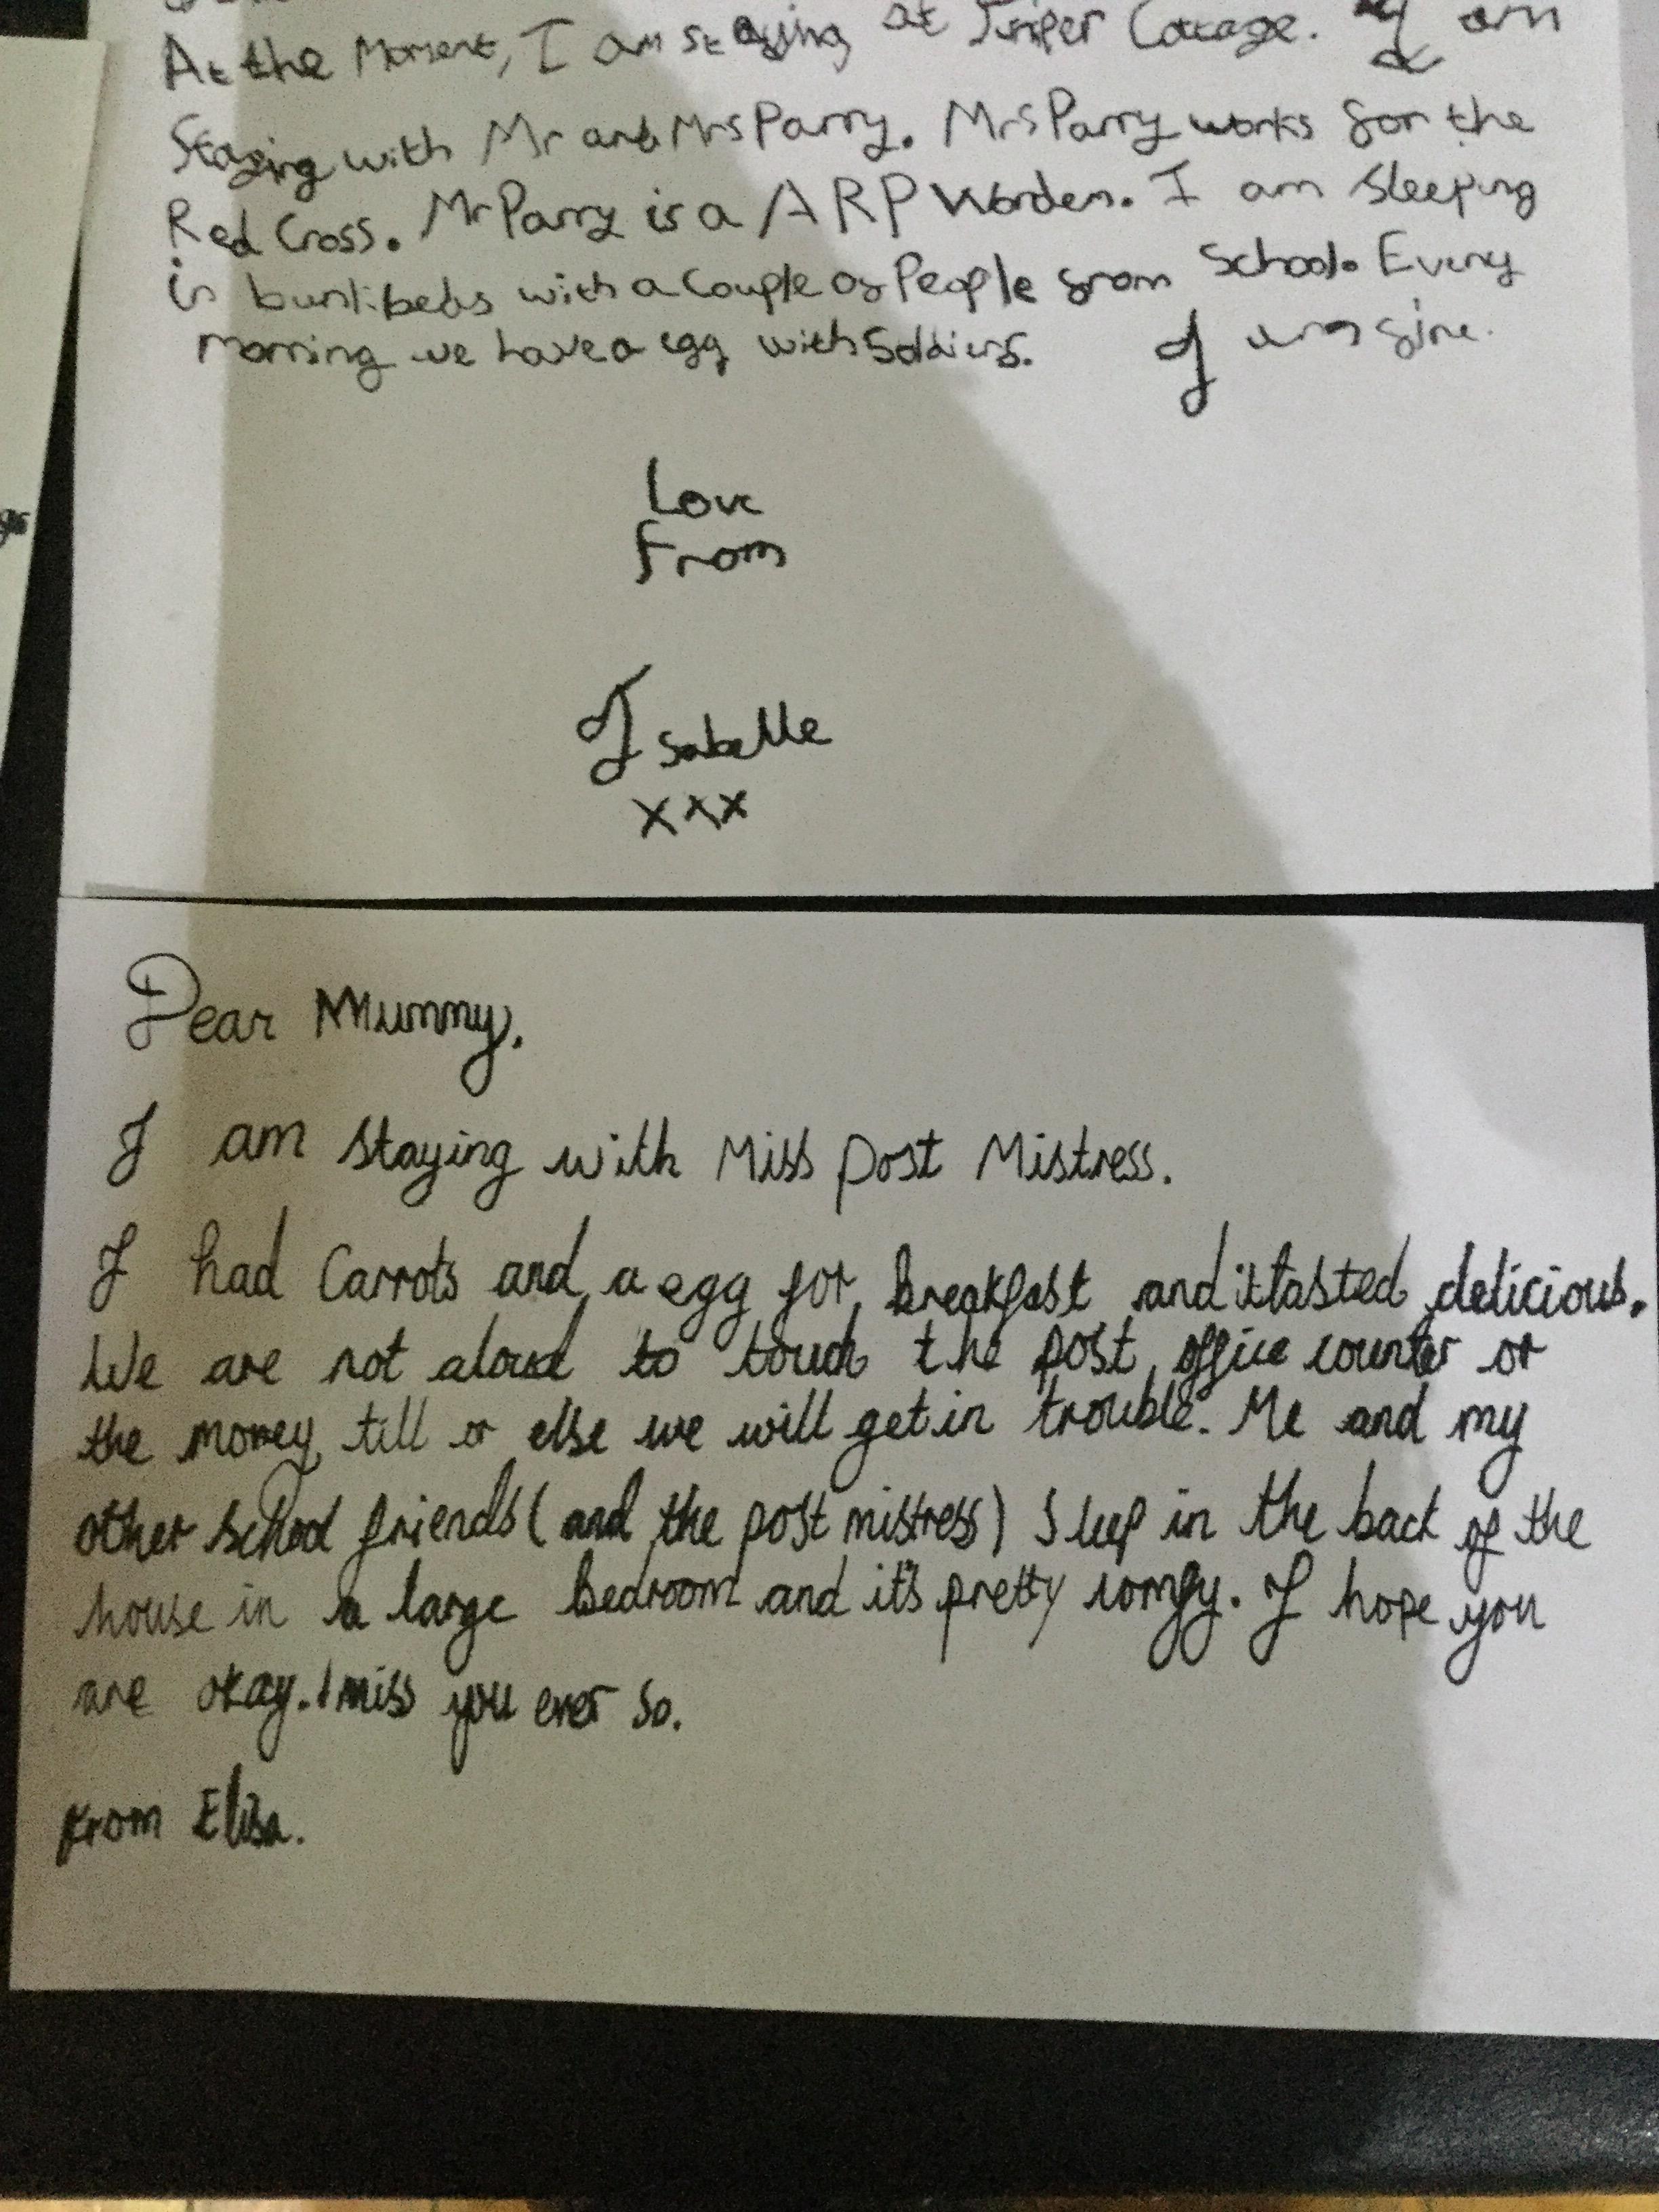 At the Moment, I am staying at Juniper Cottage. I am
Staying with Mr and Mrs Parry. Mrs Parry works for the
Red Cross. Mr Parry is a ARP Warden. I am Sleeping
in bunkbeds with a Couple of People from School. Every
morning we have a egg with Soldiers. I am fine.
Love
From
Isabelle
xxx
Dear Mummy,
I am staying with Miss post Mistress.
I had Carrots and a egg for breakfast and it tasted delicious.
We are not aloud to touch the post office counter or
the money till or else we will get in trouble. Me and my
other school friends (and the post mistress) Sleep in the back of the
house in a large Bedroom and it's pretty comfy. I hope you
are okay. I miss you ever so.
From Elisa.